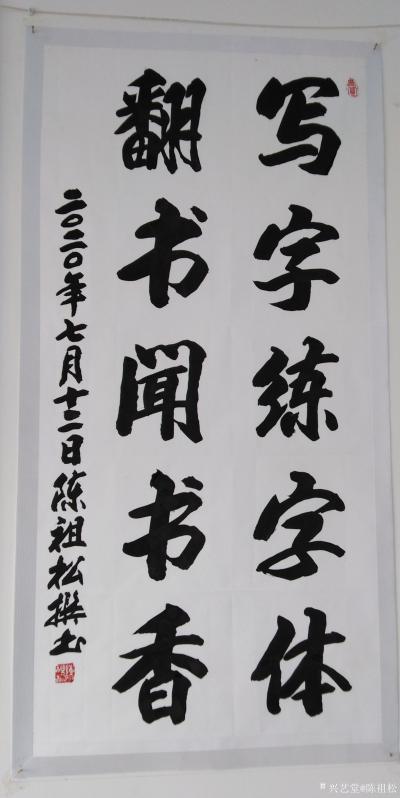 写字练字体
翻书闻书香
二〇二〇年七月十二日陈祖松撰书
兴艺堂@陈祖松